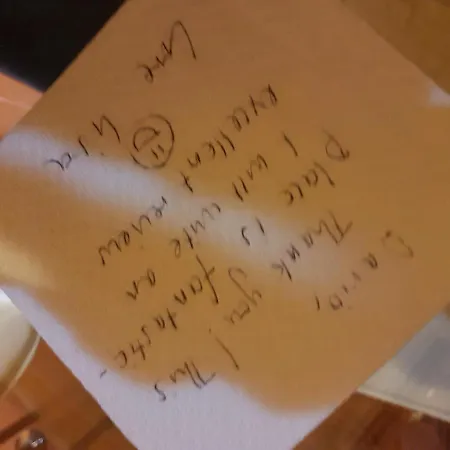 Dario,
Thank you! This
place is fantastic-
I will write an
excellent review
☺
Love
Lisa